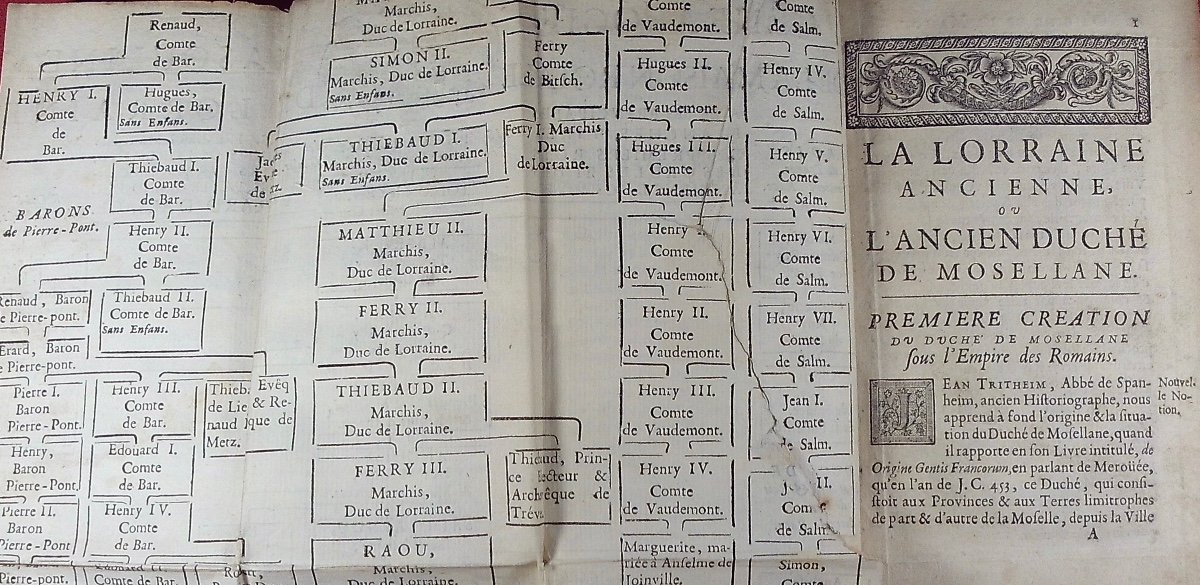 Renaud,
Comte
de Bar.
HENRY I.
Comte
de
Bar.
Hugues,
Comte de Bar.
Sans Enfans.
Thiebaud I.
Comte
de Bar.
BARONS
de Pierre-Pont.
Henry II.
Comte
de Bar.
Renaud, Baron
de Pierre-pont.
Thiebaud II.
Comte de Bar.
Sans Enfans.
Erard, Baron
Pierre-pont.
Pierre I.
Baron
Pierre-Pont.
Henry III.
Comte
de Bar.
Thieb.
de Lie
naud
Metz.
Evêq
& Re-
que de
Henry,
Baron
Pierre-Pont.
Edouard I.
Comte
de Bar.
Pierre II.
Baron
Pierre-Pont
Henry IV.
Comte
de Bar.
Pierre-pont.
Comte de Bar.
Marchis,
Duc de Lorraine.
SIMON II.
Marchis, Duc de Lorraine.
Sans Enfans.
Ferry
Comte
de Bitsch.
THIEBAUD I.
Marchis, Duc de Lorraine.
Sans Enfans.
Ferry I. Marchis,
Duc
de Lorraine.
MATTHIEU II.
Marchis,
Duc de Lorraine.
FERRY II.
Marchis,
Duc de Lorraine.
THIEBAUD II.
Marchis,
Duc de Lorraine.
FERRY III.
Marchis,
Duc de Lorraine.
Prin-
ce &
de
RAOU,
Marchis,
Duc de Lorraine.
Comte
de Vaudemont.
Hugues II.
Comte
de Vaudemont.
Hugues III.
Comte
de Vaudemont.
Henry
Comte
de Vaudemont.
Henry II.
Comte
de Vaudemont.
Henry III.
Comte
de Vaudemont.
Henry IV.
Comte
de Vaudemont.
Marguerite, ma-
riée à Anselme de
Joinville.
Comte
de Salm.
Henry IV.
Comte
de Salm.
Henry V.
Comte
de Salm.
Henry VI.
Comte
de Salm.
Henry VII.
Comte
de Salm.
Jean I.
Comte
de Salm.
II.
de Salm.
Simon,
Comte
1
LA LORRAINE
ANCIENNE,
OU
L'ANCIEN DUCHÉ
DE MOSELLANE.
PREMIERE CREATION
DU DUCHE' DE MOSELLANE
sous l'Empire des Romains.
JEAN TRITHEIM, Abbé de Span-
heim, ancien Historiographe, nous
apprend à fond l'origine & la situa-
tion du Duché de Mosellane, quand
il rapporte en son Livre intitulé, de
Origine Gentis Francorum, en parlant de Meroüée,
qu'en l'an de J. C. 453, ce Duché, qui consi-
stoit aux Provinces & aux Terres limitrophes
de part & d'autre de la Moselle, depuis la Ville
A
Nouvel-
le No-
tion.